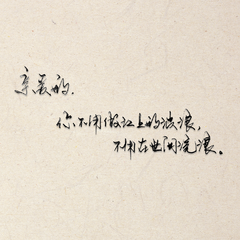 亲爱的.
你不用做江上的波浪,
不用在世间流浪。